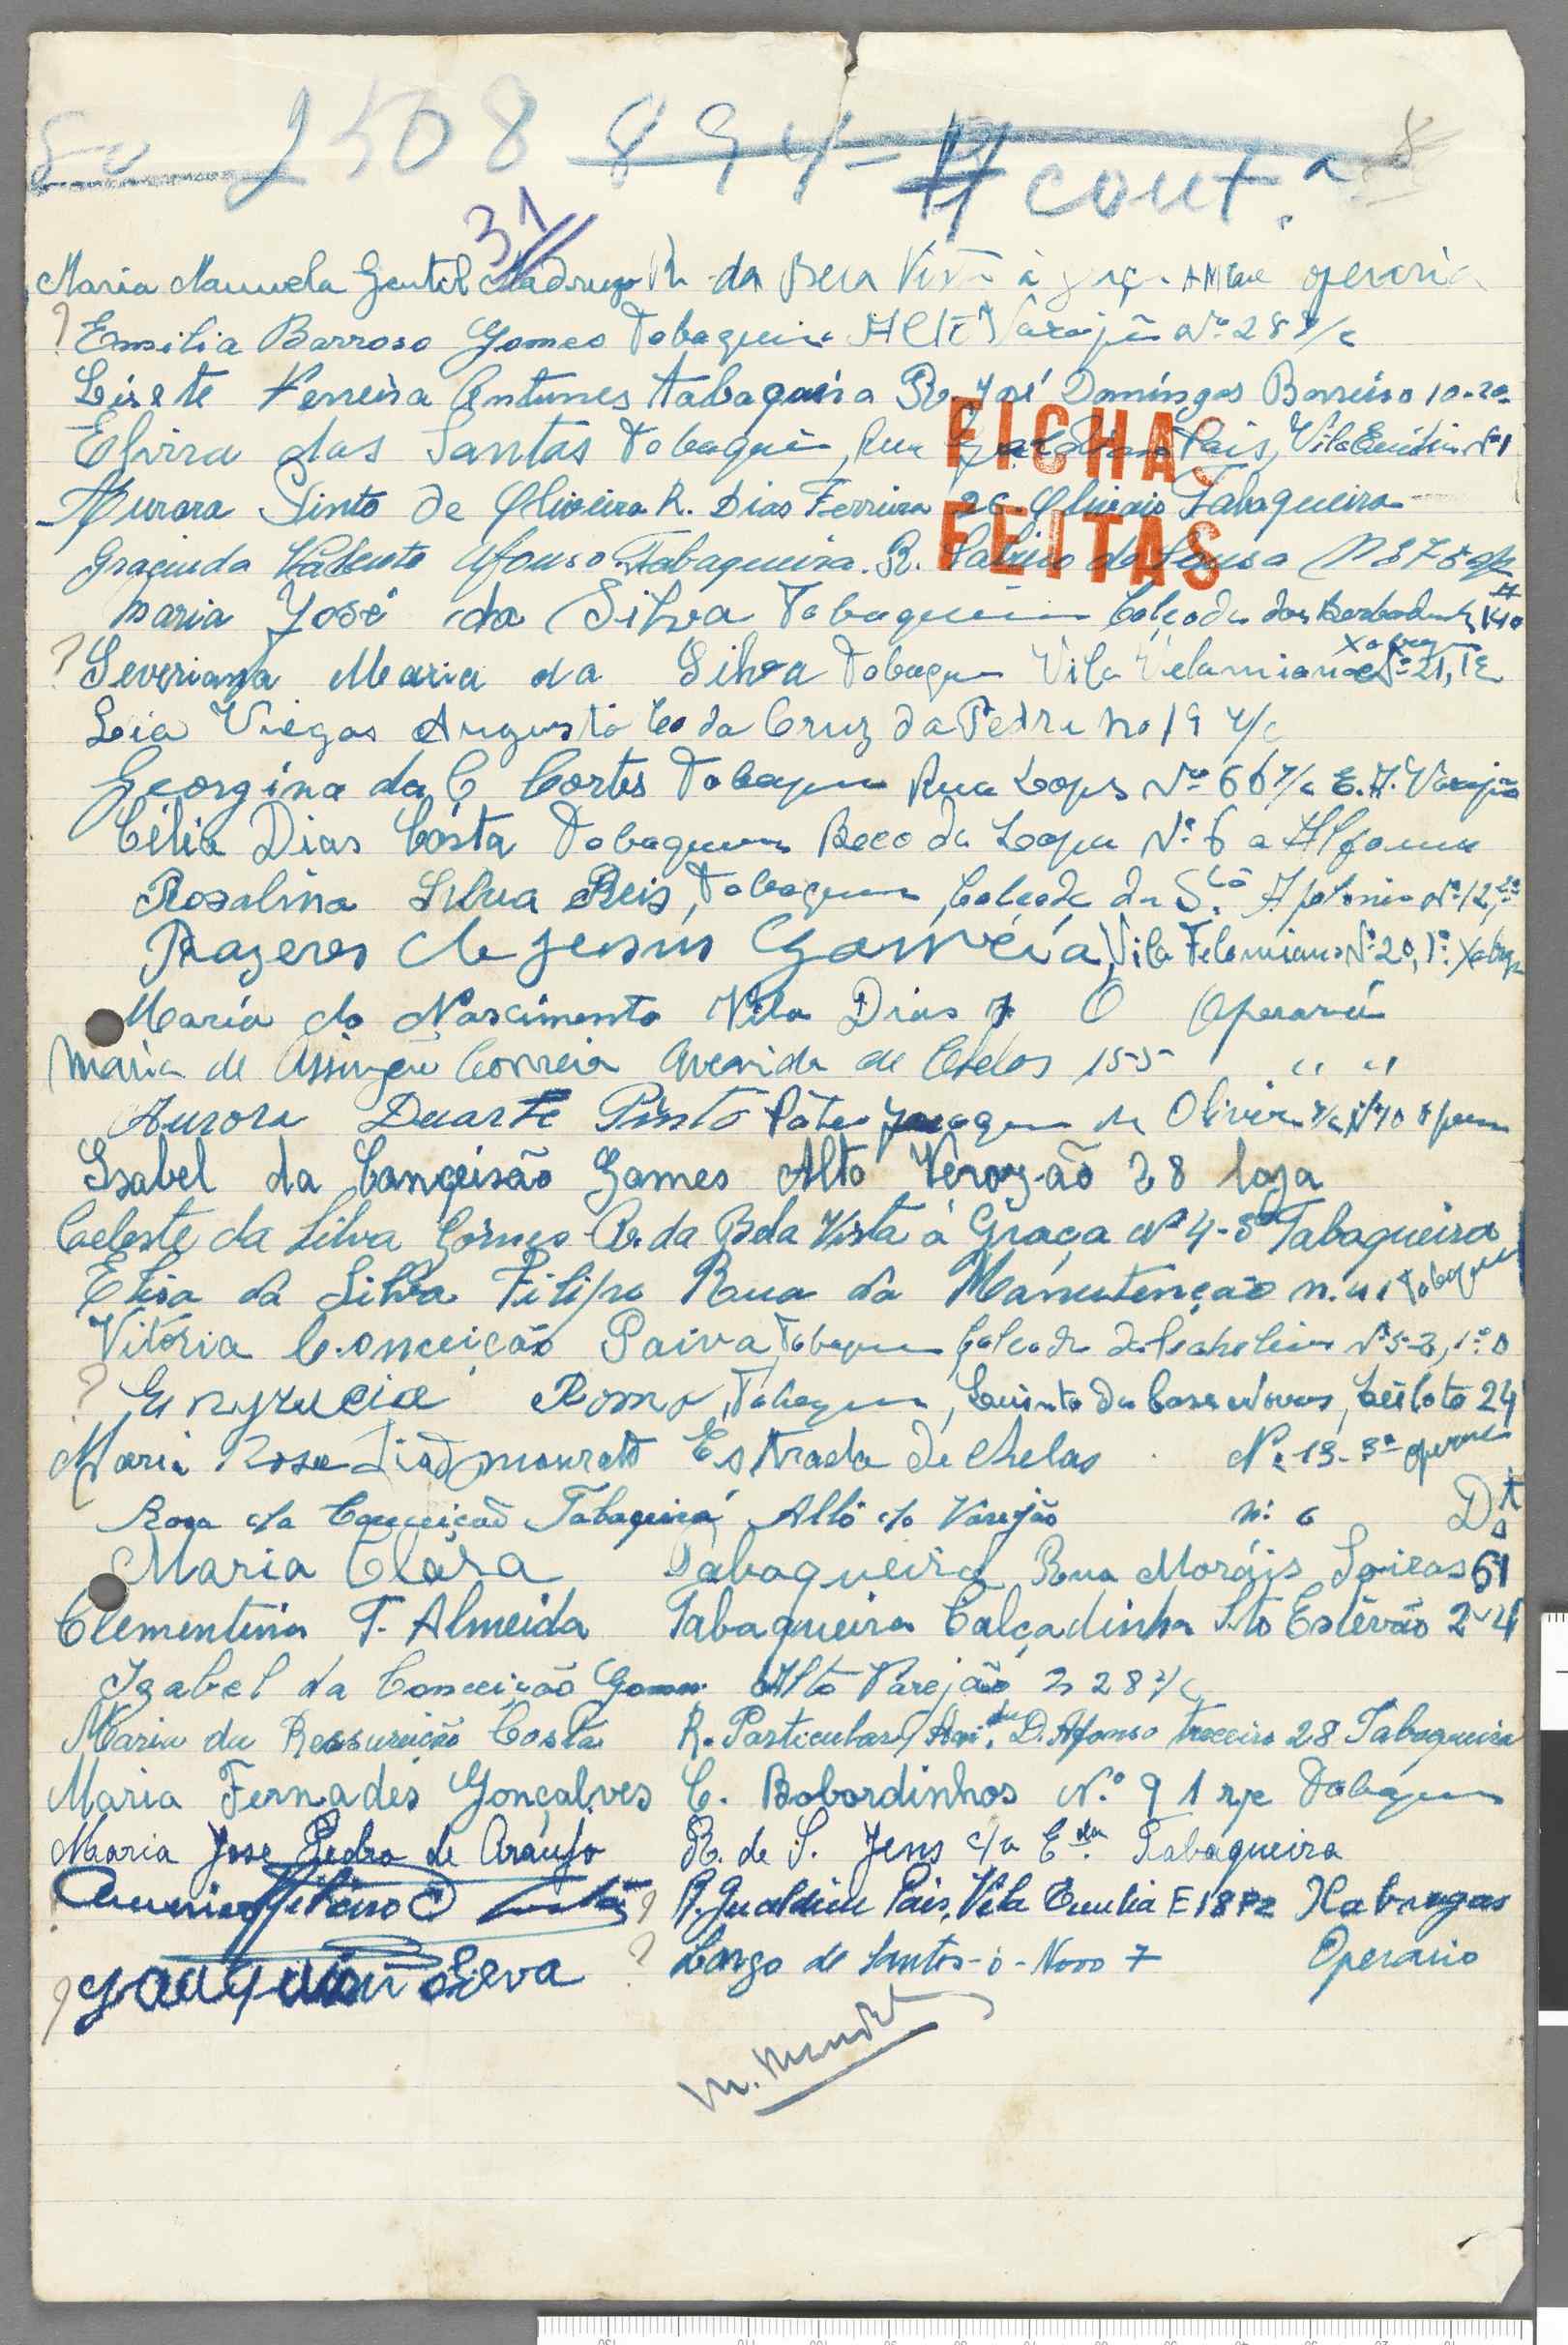 2508 894 cont.a
31
Maria Manuela Gentil Madruga R. da Bela Vista à operaria
? Emilia Barroso Gomes Tabaqueira Alto Varejão Nº 28 r/c
Lisete Ferreira Antunes tabaqueira R. José Domingos Barreiro 10-2º
Elvira dos Santos Tabaqueira, Rua Pais, Vila Emilia Nº 1
Aurora Pinto de Oliveira R. Dias Ferreira 26 Olivais Tabaqueira
FICHAS
FEITAS
Gracinda Valente Afonso Tabaqueira. R. Sabino de Sousa
Maria José da Silva Tabaqueira Calçada dos Barbadinhos 140
? Severiana Maria da Silva Tabaqueira Vila Nº 21, 1º Xabregas
Leia Viegas Augusto Co da Cruz da Pedra no 19 r/c
Georgina da C Cortes Tabaqueira Rua Lopes Nº 66 r/c E. A. Varejão
Célia Dias Costa Tabaqueira Beco da Nº 6 a Alfama
Rosalina Silva Reis, Tabaqueira, Calçada da Stª Apolonia Nº 12, 2º
Prazeres de Jesus Gouveia, Vila Nº 20, 1º. Xabregas
Maria do Nascimento Vila Dias 7 O Operaria
Maria de Assunção Correia Avenida de Chelas 155 " "
Aurora Duarte Pinto Páteo de Oliveira r/c Nº 10
Isabel da Conçeisão Gomes Alto Verozão 28 loja
Celeste da Silva Gomes R. da Bela Vista à Graça Nº 4-3º Tabaqueira
Elisa da Silva Filipe Rua da Manutenção n. Tabaqueira
Vitória Conceição Paiva, Tabaqueira Calçada
? Roma, Tabaqueira, Quinta das Casas Novas, 24
Maria Rosa Estrada de Chelas Nº 13-3º
Rosa da Conceição Tabaqueira Alto do Varejão nº 6 Dta
Maria Clára Tabaqueira Rua Moráis Soires 61
Clementina T. Almeida Tabaqueira Calçadinha Sto Estêvão 2-4
Isabel da Conceição Gomes Alto Varejão n 28 r/c
Maria da Ressureição Costa R. Particular Av. D. Afonso Treceiro 28 Tabaqueira
Maria Fernades Gonçalves C. Bobordinhos Nº 9 1 Tabaqueira
Maria Jose Pedro de Araujo R. de S. Jens c/a Tabaqueira
? R. Gualdim Pais, Vila Emilia Xabregas
? Joaquim Silva ? Largo de Santos-o-Novo 7 Operario